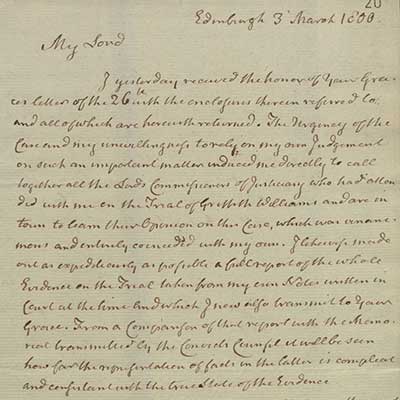 20
Edinburgh 3 March 1800.
My Lord
I yesterday received the honor of Your Gra-
ces letter of the 26th with the enclosures therein referred to,
and all of which are herewith returned. The Urgency of the
Case and my unwillingness to rely on my own Judgement
on such an important matter induced me directly to call
together all the Lords Commissioners of Justiciary who had atten
ded with me on the Trial of Griffith Williams and are in
town to learn their Opinion on this Case, which was unani-
mous and entirely coincided with my own. I likewise made
out as expeditiously as possible a full report of the whole
Evidence on the Trial taken from my own Notes written in
Court at the time and which I now also transmit to Your
Grace. From a Comparison of that report with the Memo-
rial transmitted by the Convicts Councel it will be seen
how far the representation of facts in the latter is compleat
and consistant with the true State of the Evidence